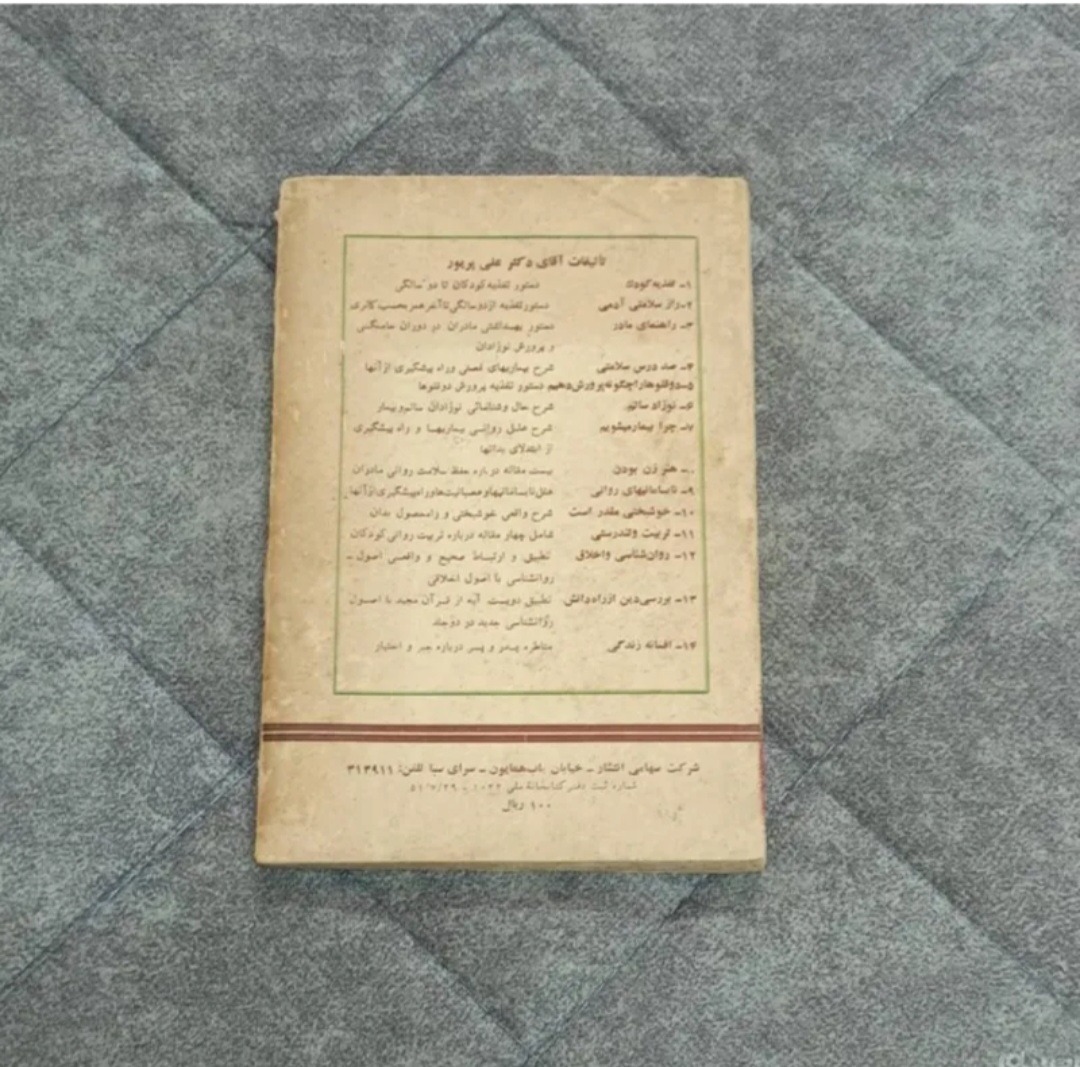 تألیفات آقای دکتر علی پریور
۱ـ تغذیه کودک دستور تغذیه کودکان تا دو سالگی
۲ـ راز سلامتی آدمی دستور تغذیه از دو سالگی تا آخر عمر بحسب کالری
۳ـ راهنمای مادر دستور بهداشتی مادران در دوران حاملگی
و پرورش نوزادان
۴ـ صد درس سلامتی شرح بیماریهای فصلی و راه پیشگیری از آنها
۵ـ دوقلوها را چگونه پرورش دهیم دستور تغذیه پرورش دوقلوها
۶ـ نوزاد سالم شرح حال و شناسائی نوزادان سالم و بیمار
۷ـ چرا بیمار میشویم شرح علل روانی بیماریها و راه پیشگیری
از ابتلای بدانها
ـ هنر زن بودن بیست مقاله درباره حفظ سلامت روانی مادران
۹ـ نابسامانیهای روانی علل نابسامانیها و عصبانیت‌ها و راه پیشگیری از آنها
۱۰ـ خوشبختی مقدر است شرح واقعی خوشبختی و راه حصول بدان
۱۱ـ تربیت و تندرستی شامل چهار مقاله درباره تربیت روانی کودکان
۱۲ـ روان‌شناسی و اخلاق تطبیق و ارتباط صحیح و واقعی اصول ـ
روانشناسی با اصول اخلاقی
۱۳ـ بررسی دین از راه دانش تطبیق دویست آیه از قرآن مجید با اصول
روانشناسی جدید در دو جلد
۱۴ـ افسانه زندگی مناظره پدر و پسر درباره جبر و اختیار
شرکت سهامی انتشار ـ خیابان باب‌همایون ـ سرای سبا تلفن: ۳۱۳۹۱۱
شماره ثبت دفتر کتابخانهٔ ملی ۱۰۲۲ ـ ۵۱/۷/۲۹
۱۰۰ ریال